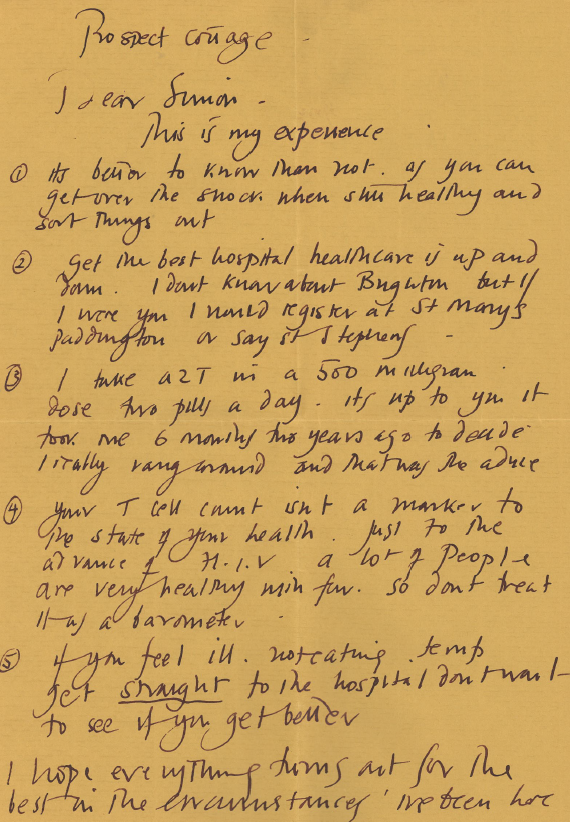 Prospect cottage -
Dear Simon -
This is my experience .
① its better to know than not . as you can
get over the shock when still healthy and
sort things out
② Get the best hospital healthcare is up and
down . I dont know about Brighton but if
I were you I would register at St Mary's
Paddington or say St Stephens -
③ I take A2T in a 500 milligram .
dose two pills a day . its up to you it
took me 6 months two years ago to decide
I really rang around and that was the advice
④ your T cell count isnt a marker to
the state of your health . Just to the
advance of H.I.V a lot of People
are very healthy with few . So dont treat
it as a barometer .
⑤ if you feel ill . not eating . temp
get straight to the hospital dont wait
to see if you get better
I hope everything turns out for the
best in the circumstances ' ive been